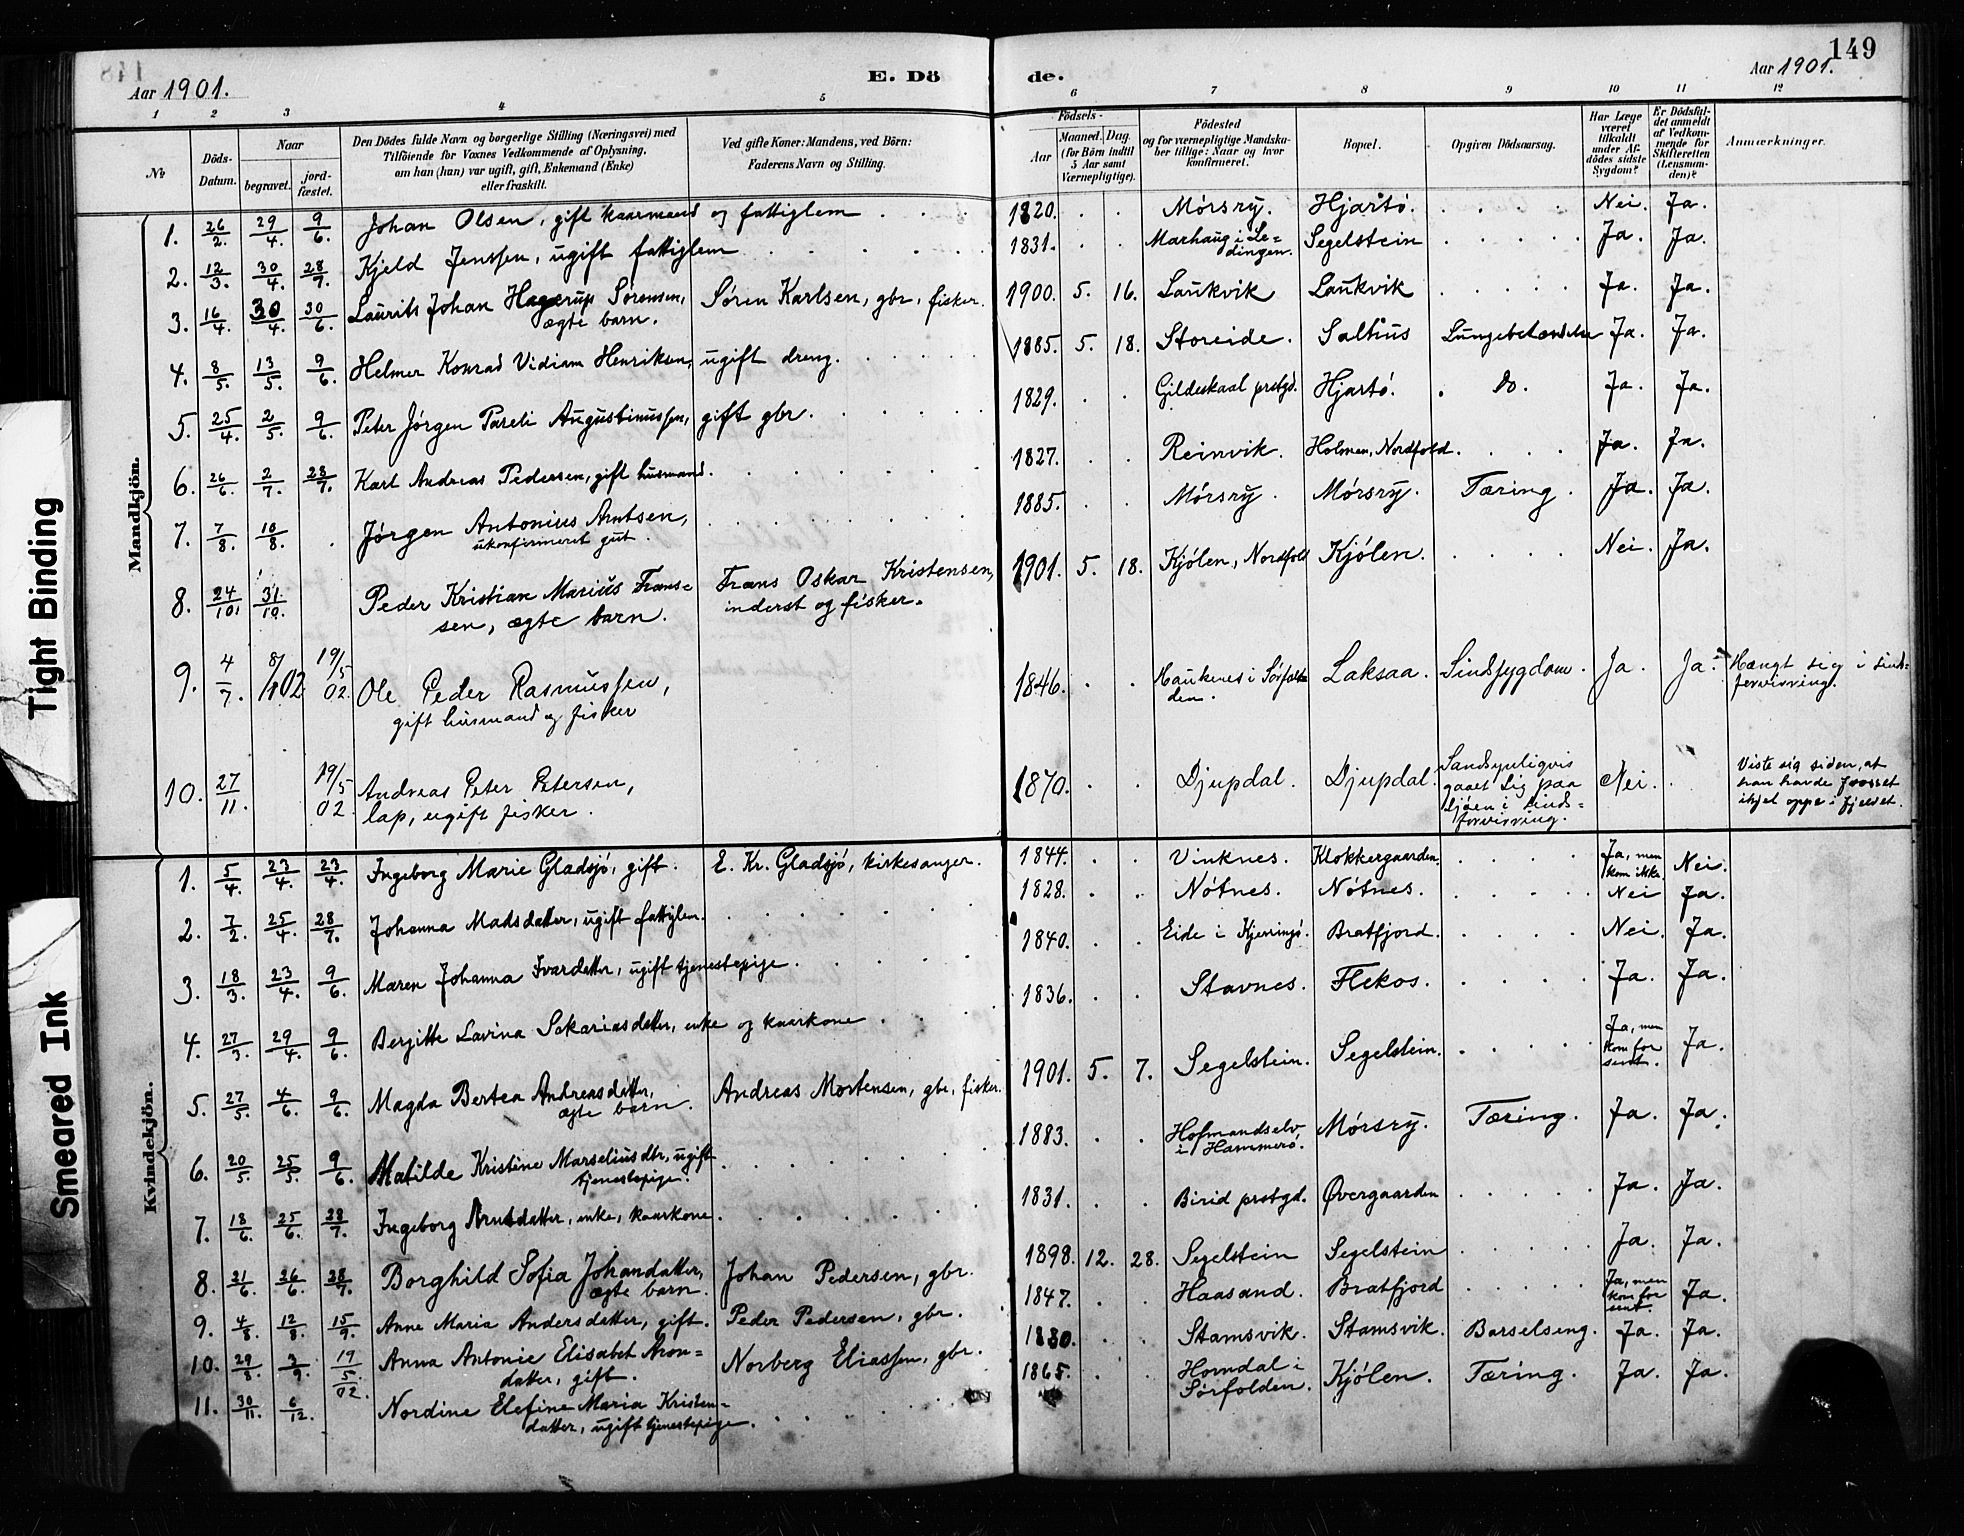 149
Aar 1901.
E. Dö
de.
Aar 1901.
1 2 3 4 5 6 7 8 9 10 11 12
No
Döds-
Datum.
Naar
begravet.
jord-
fæstet.
Den Dödes fulde Navn og borgerlige Stilling (Næringsvei) med
Tilföiende for Voxnes Vedkommende af Oplysning,
om han (hun) var ugift, gift, Enkemand (Enke)
eller fraskilt.
Ved gifte Koner: Mandens, ved Börn:
Faderens Navn og Stilling.
Födsels-
Aar
Maaned. Dag.
(for Börn indtil
5 Aar samt
Værnepligtige).
Födested
og for værnepligtige Mandska-
ber tillige: Naar og hvor
konfirmeret.
Bopæl.
Opgiven Dödsaarsag.
Har Læge
været
tilkaldt
under Af-
dödes sidste
Sygdom?
Er Dödsfal-
det anmeldt
af Vedkom-
mende for
Skifteretten
(Lensman-
den)?
Anmærkninger.
Mandkjön.
1. 26/2. 29/4. 9/6. Johan Olsen, gift kaarmand og fattiglem 1820. Mörsry. Hjartö. Nei. Ja.
2. 12/3. 30/4. 28/7. Kjeld Jenssen, ugift fattiglem 1831. Marhaug i Lö-
dingen. Segelstein Ja. Ja.
3. 16/4. 30/4. 30/6. Laurits Johan Hagerup Sörensen, Sören Karlsen, gbr, fisker. 1900. 5. 16. Laukvik Laukvik Ja. Ja.
ægte barn.
4. 8/5. 13/5. 9/6. Helmer Konrad Vidiam Henriksen, ugift dreng. 1885. 5. 18. Storeide. Saltius Lungebetændelse Ja. Ja.
5. 25/4. 2/5. 9/6. Peter Jörgen Pareli Augustinussen, gift gbr. 1829. Gildeskaal prstgd. Hjartö. Do. Ja. Ja.
6. 26/6. 2/7. 28/7. Karl Andreas Pedersen, gift husmand. 1827. Reinvik. Holmen, Nordfold. Ja. Ja.
7. 7/8. 10/8. Jörgen Antonius Arntsen, 1885. Mörsry. Mörsry. Tæring. Ja. Ja.
ukonfirmeret gut.
8. 24/10. 31/10. Peder Kristian Marius Frans- Frans Oskar Kristensen, 1901. 5. 18. Kjölen, Nordfold Kjölen. Nei. Ja.
sen, ægte barn. inderst og fisker.
9. 4/7. 8/1 02 19/5 02. Ole Peder Rasmussen, 1846. i Sörfol-
den. Laksaa. Sindssygdom. Ja. Ja. Hængt sig i sinds-
forvirring.
gift husmand og fisker
10. 27/11. 19/5 02. Andreas Peter Petersen, 1870. Djupdal. Djupdal. Sandsynligvis
gaaet sig paa
sjöen i sinds-
forvirring. Nei. Viste sig siden, at
han havde frosset
ihjel oppe i fjeldet.
lap, ugift fisker.
Kvindekjön.
1. 5/4. 23/4. 23/4. Ingeborg Marie Gladsjö, gift. E. Kr. Gladsjö, kirkesanger. 1844. Vinknes. Klokkergaarden. Ja, men
kom ikke. Nei.
2. 7/2. 25/4. 28/7. Johanna Madsdatter, ugift fattiglem. 1828. Nötnes. Nötnes. Nei Ja.
3. 18/3. 23/4. 9/6. Maren Johanna Ivardatter, ugift tjenestepige. 1840. Eide i Kjerringö. Bratfjord. Nei. Ja.
4. 27/3. 29/4. 9/6. Bergitte Lavina Sakariasdatter, enke og kaarkone 1836. Stavnes. Flekos. Ja. Ja.
5. 27/5. 4/6. 9/6. Magda Bertea Andreasdatter, Andreas Mortensen, gbr, fisker. 1901. 5. 7. Segelstein. Segelstein. Ja, men
kom for
sent. Ja.
ægte barn.
6. 20/5. 25/5. 9/6. Matilde Kristine Marseliusdtr, ugift 1883. Hofmandselv
i Hammerö. Mörsry. Tæring. Ja. Ja.
tjenestepige.
7. 18/6. 25/6. 28/7. Ingeborg Arntsdatter, enke, kaarkone. 1831. Birid prstgd. Øvergaarden Ja. Ja.
8. 21/6. 26/6. 28/7. Borghild Sofia Johandatter, Johan Pedersen, gbr. 1898. 12. 28. Segelstein Segelstein Ja. Ja.
ægte barn.
9. 4/8. 12/8. 15/9. Anne Maria Andersdatter, gift. Peder Pedersen, gbr. 1847. Haasand. Bratfjord Ja, men
kom for
sent. Ja.
10. 29/8. 3/9. 19/5 02. Anna Antonie Elisabet Aron- Norberg Eliassen, gbr. 1880. Stamsvik. Stamsvik. Barselseng. Ja. Ja.
datter, gift.
11. 30/11. 6/12. Nordine Elefine Maria Kristen- 1865. Horndal i
Sörfolden. Kjölen. Tæring. Ja. Ja.
datter, ugift tjenestepige.
Tight Binding
Smeared Ink